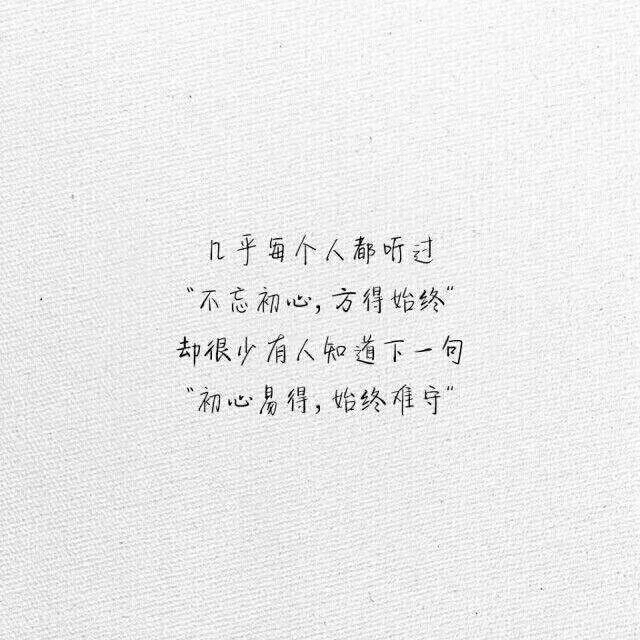 几乎每个人都听过
"不忘初心,方得始终"
却很少有人知道下一句
"初心易得,始终难守"